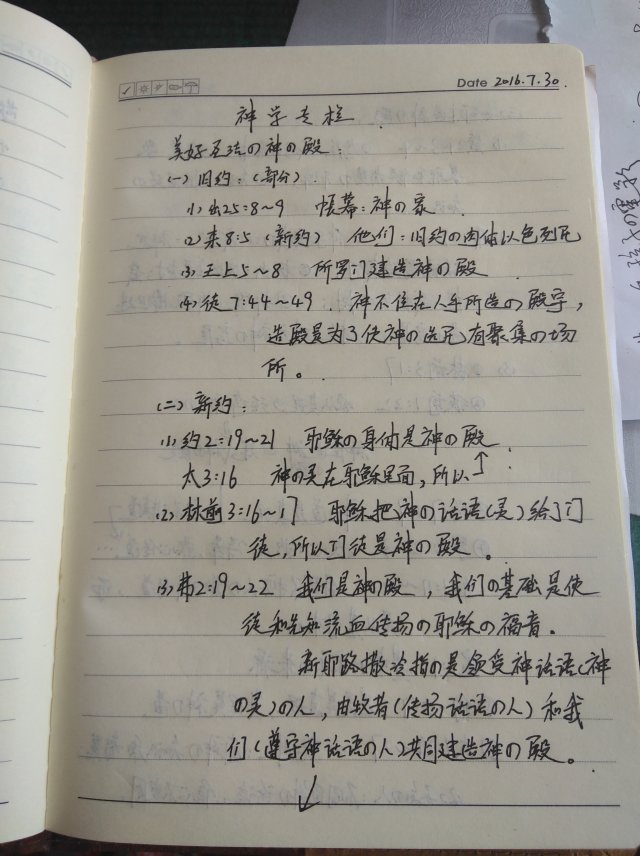 Date 2016.7.30.
神学专栏
美好无法の神の殿：
(一) 旧约：(部分)
(1) 出25:8~9 帐幕：神の家
(2) 来8:5 (新约) 他们：旧约の肉体以色列民
(3) 王上5~8 所罗门建造神の殿
(4) 徒7:44~49. 神不住在人手所造の殿宇，
造殿是为了供神の选民有聚集の场
所。
(二) 新约：
(1) 约2:19~21 耶稣の身体是神の殿
太3:16 神の灵在耶稣里面，所以↑
(2) 林前3:16~17 耶稣把神の话语(灵)给了门
徒，所以门徒是神の殿。
(3) 弗2:19~22 我们是神の殿，我们の基础是使
徒和先知流血传扬の耶稣の福音。
新耶路撒冷指の是领受神话语(神
の灵)の人，由牧者(传扬话语の人)和我
们(遵守神话语の人)共同建造神の殿。
↓